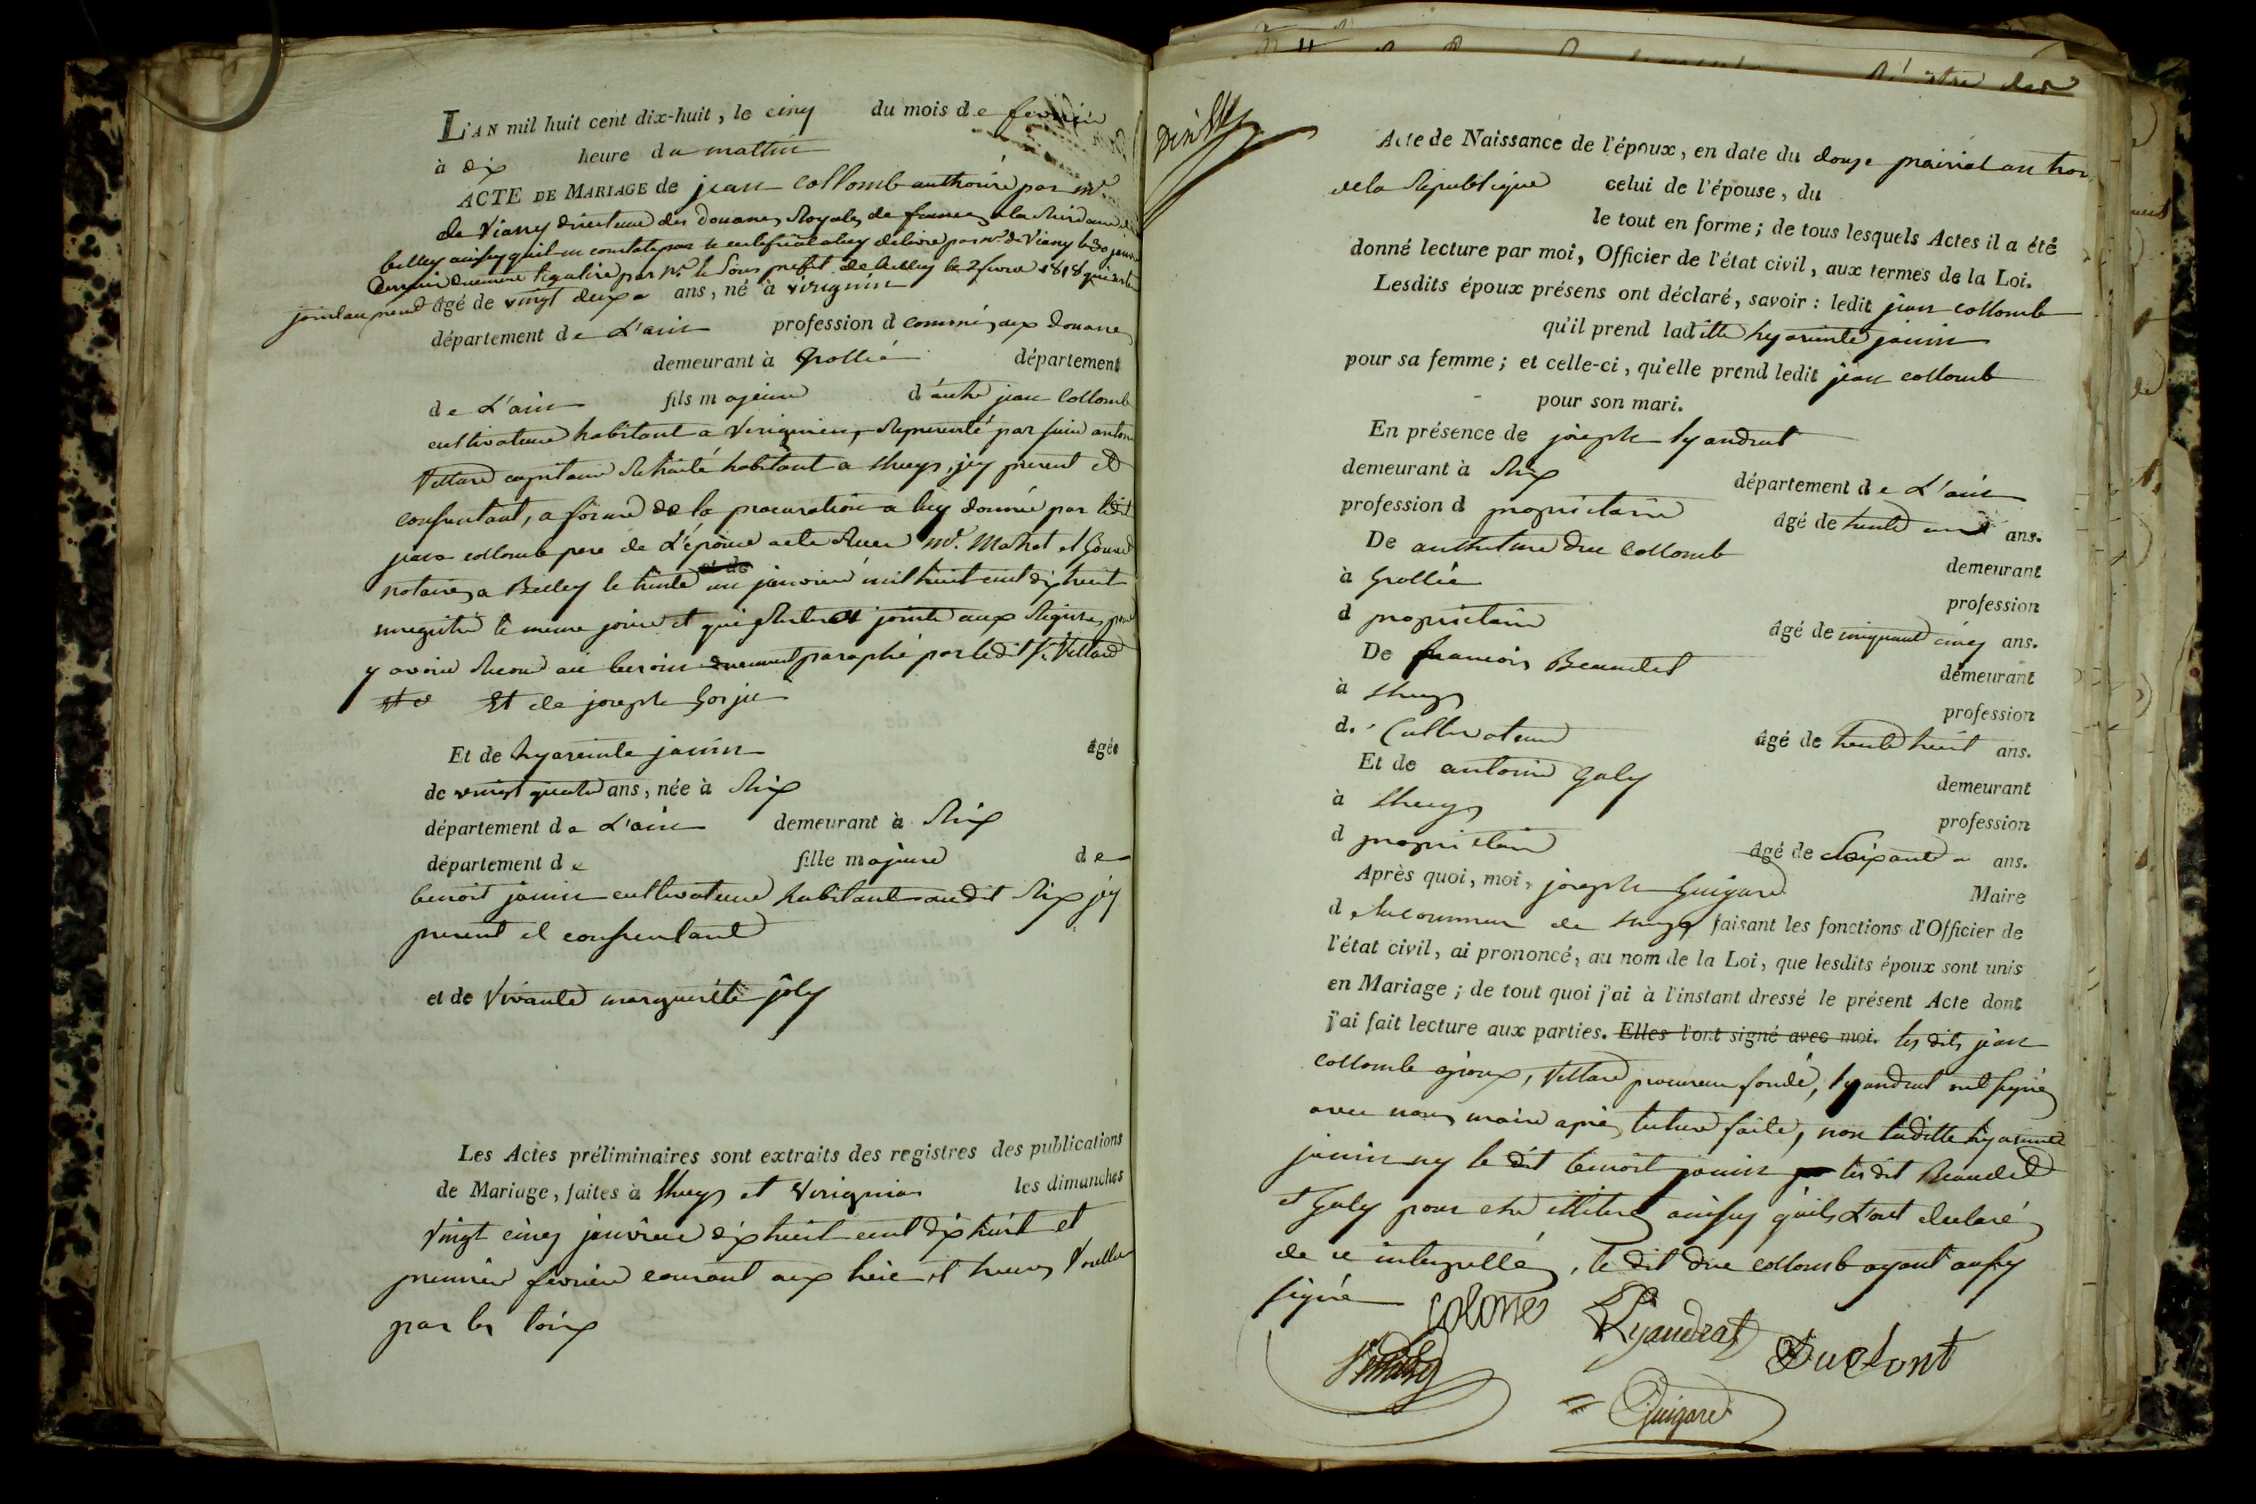 L'AN mil huit cent dix-huit, le cinq du mois de fevrier
à dix heure du mattin
ACTE DE MARIAGE de jean Collomb authorisé par Mr.
de Viany directeur des douanes Royales de france a la Residance de
belley ainsy quil en conste par le certificat a luy delivré par Mr. de Viany le 30 janvier
dernier duement legalisé par Mr. le Sous prefet de belley le 2 fevrier 1818 qui restera
joint au présent âgé de vingt deux ans, né à virignin
département de L'ain profession d commis aux douanes
demeurant à Grollié département
de L'ain fils majeur d'autre jean Collomb
cultivateur habitant a Virignin, Representé par sieur antoine
Villard capitaine Retraité habitant a lhuys, icy present et
consentant, a forme de la procuration a luy donnée par ledit
jean collomb pere de L'époux acte Recu Mr.
notaires a Belley le trente un janvier mil huit cent dix huit
enregistré le meme jour et qui Restera jointe aux Registres pour
y avoir Recour au besoin duement paraphé par ledit Sr. Villard
Et de joseph Gorju
Et de hyacinte janin âgée
de vingt quatre ans, née à Rix
département de L'ain demeurant à Rix
département de fille majeure de
benoit janin cultivateur habitant audit Rix icy
present et consentant
et de Vivante marguérite joly
Les Actes préliminaires sont extraits des registres des publications
de Mariage, faites à lhuys et Virignin les dimanches
vingt cinq janvier dix huit cent dix huit et
premier fevrier courant aux lieu et heures Voullue
par les loix
Acte de Naissance de l'époux, en date du douze prairial an trois
de la Republique celui de l'épouse, du
le tout en forme; de tous lesquels Actes il a été
donné lecture par moi, Officier de l'état civil, aux termes de la Loi.
Lesdits époux présens ont déclaré, savoir : ledit jean collomb
qu'il prend laditte hyacinte janin
pour sa femme; et celle-ci, qu'elle prend ledit jean collomb
pour son mari.
En présence de joseph lyandrat
demeurant à Rix département de L'ain
profession d propriétaire âgé de trente ans.
De anthelme duc Collomb demeurant
à Grollié profession
d propriétaire âgé de cinquante cinq ans.
De francois Beaudet demeurant
à lhuys profession
d. Cultivateur âgé de trente huit ans.
Et de antoine Galy demeurant
à lhuys profession
d propriétaire âgé de Soixante ans.
Après quoi, moi, joseph Guigard Maire
d elacommun de lhuys faisant les fonctions d'Officier de
l'état civil, ai prononcé, au nom de la Loi, que lesdits époux sont unis
en Mariage; de tout quoi j'ai à l'instant dressé le présent Acte dont
j'ai fait lecture aux parties. Elles l'ont signé avec moi. les dits jean
Collomb époux, Villard procureur fondé, lyandrat ont signé
avec nous maire après lecture faite, non laditte hyacinte
janin ny le dit benoit janin les dit Beaudet
et Galy pour etre illiteres ainsy quils L'ont declaré
de ce interpellés, le dit duc collomb ayant aussy
signé
Colomb Lyandrat Duclont
Villard
Guigard